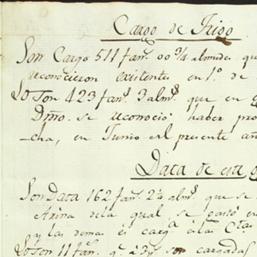 Cargo de Trigo
Son Cargo 511 fan.s 00 3/4 almudes que
reconocieron existentes en 1.º de
Yo Son 423 fan.s 3 alm.s que en
Dmo. se reconoció haber pro
cha, en Junio el presente añ
Data de esta
Son Data 162 fan.s 2 1/2 alm.s que se
Arina dela qual, se gastó en
y las demas el carg a las Cta
Yo Son 11 fan.s q.e 23 son cargadas